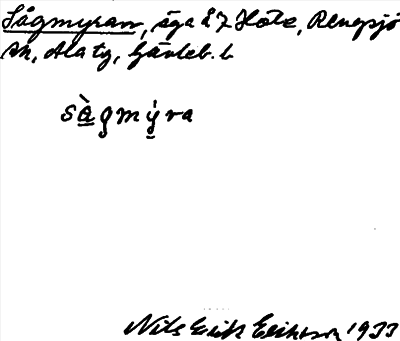 Sågmyran, äga å 7 Hote, Rengsjö
sn, Ala tg, Gävleb. l
sàgmýra
Nils Erik Eriksson 1933